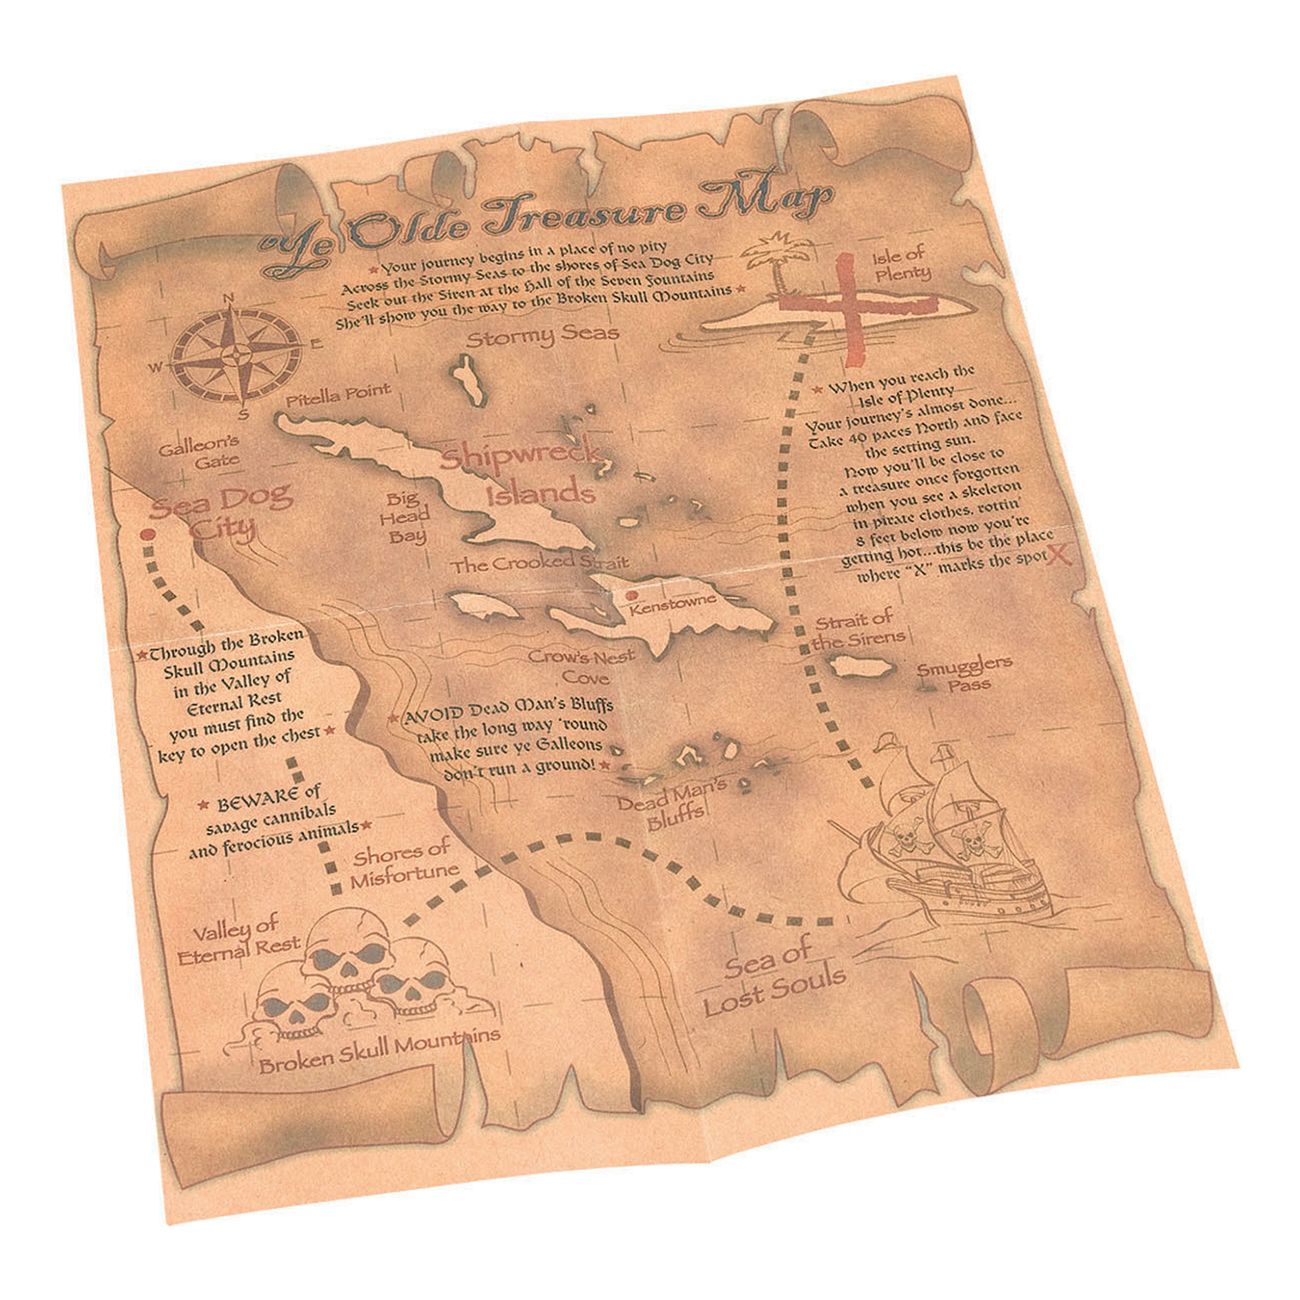 Ye Olde Treasure Map
Your journey begins in a place of no pity
Across the Stormy Seas to the shores of Sea Dog City
Seek out the Siren at the Hall of the Seven Fountains
She'll show you the way to the Broken Skull Mountains
Isle of
Plenty
N
E
W
S
Stormy Seas
Pitella Point
When you reach the
Isle of Plenty
Your journey's almost done...
Take 40 paces North and face
the setting sun.
Now you'll be close to
a treasure once forgotten
when you see a skeleton
in pirate clothes, rottin'
8 feet below now you're
getting hot...this be the place
where "X" marks the spot X
Galleon's
Gate
Shipwreck
Islands
Sea Dog
City
Big
Head
Bay
The Crooked Strait
Kenstowne
Strait of
the Sirens
Smugglers
Pass
Crow's Nest
Cove
Through the Broken
Skull Mountains
in the Valley of
Eternal Rest
you must find the
key to open the chest
AVOID Dead Man's Bluffs
take the long way 'round
make sure ye Galleons
don't run a ground!
Dead Man's
Bluffs
BEWARE of
savage cannibals
and ferocious animals
Shores of
Misfortune
Valley of
Eternal Rest
Sea of
Lost Souls
Broken Skull Mountains